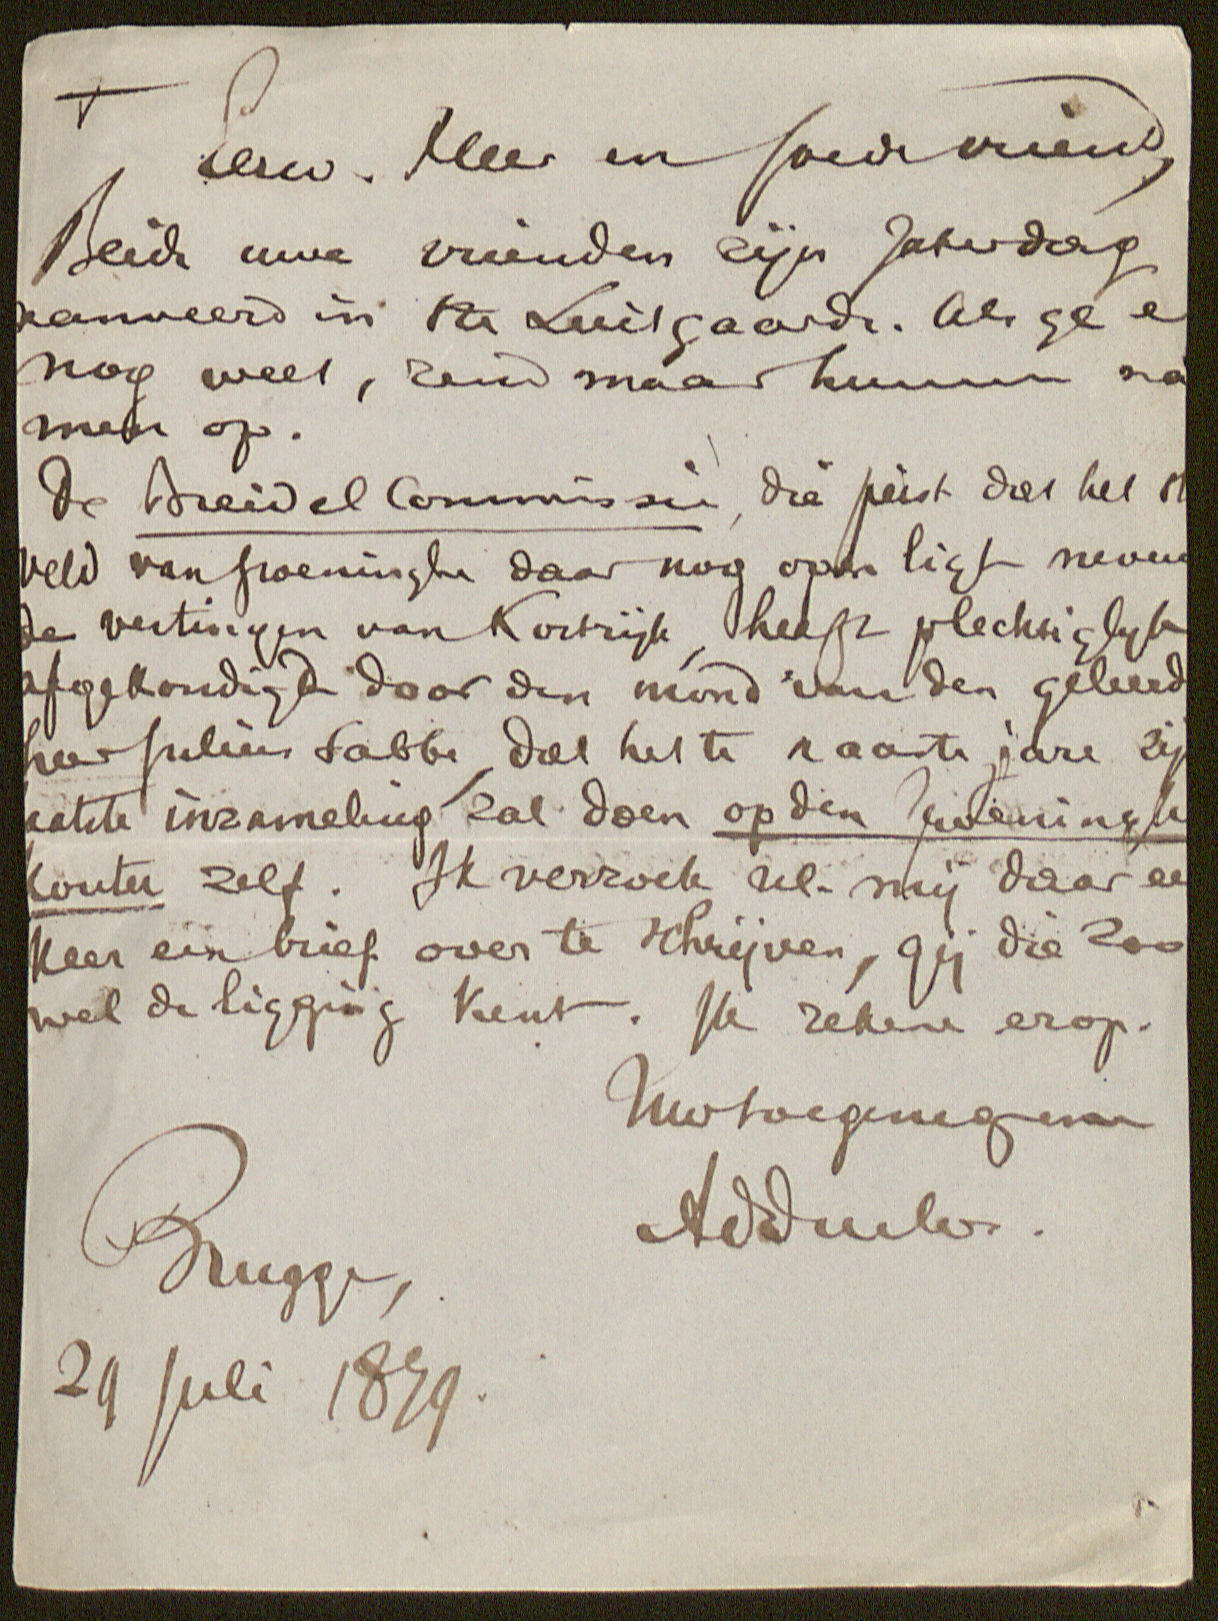 +
Eerw. Heer en goede vriend,
Beide uwe vrienden zijn zaterdag
aanveerd in Ste Luitgaarde. Als ge e
nog weet, zend maar hunne na
men op.
De Breidel Commissie, die peist dat het sl
veld van Groeninghe daar nog open ligt neven
de vestingen van Kortrijk, heeft plechtiglijk
afgekondigd door den mond van den geleerd
heer Julius Sabbe, dat het te naaste jare zij
aatste inzameling zal doen op den Groeningh
Kouter zelf. Ik verzoek ul. mij daar ee
keer een brief over te schrijven, gij die zoo
wel de ligging kent. Ik rekene erop.
Uw toegenegene
AdDuclos.
Brugge,
29 Juli 1879.